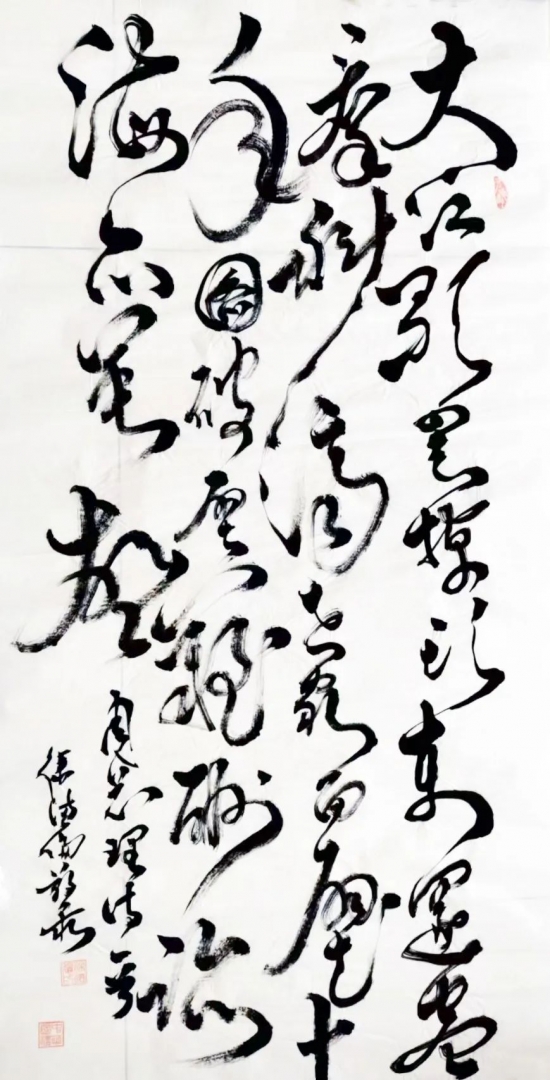 大江歌罷掉頭東邃密
群科濟世窮面壁十
年圖破壁難酬蹈
海亦英雄
周總理詩一首